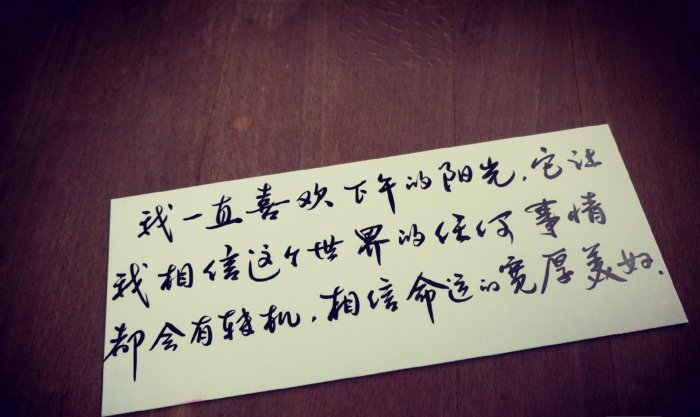 我一直喜欢下午的阳光,它让
我相信这个世界的任何事情
都会有转机,相信命运的宽厚美好.